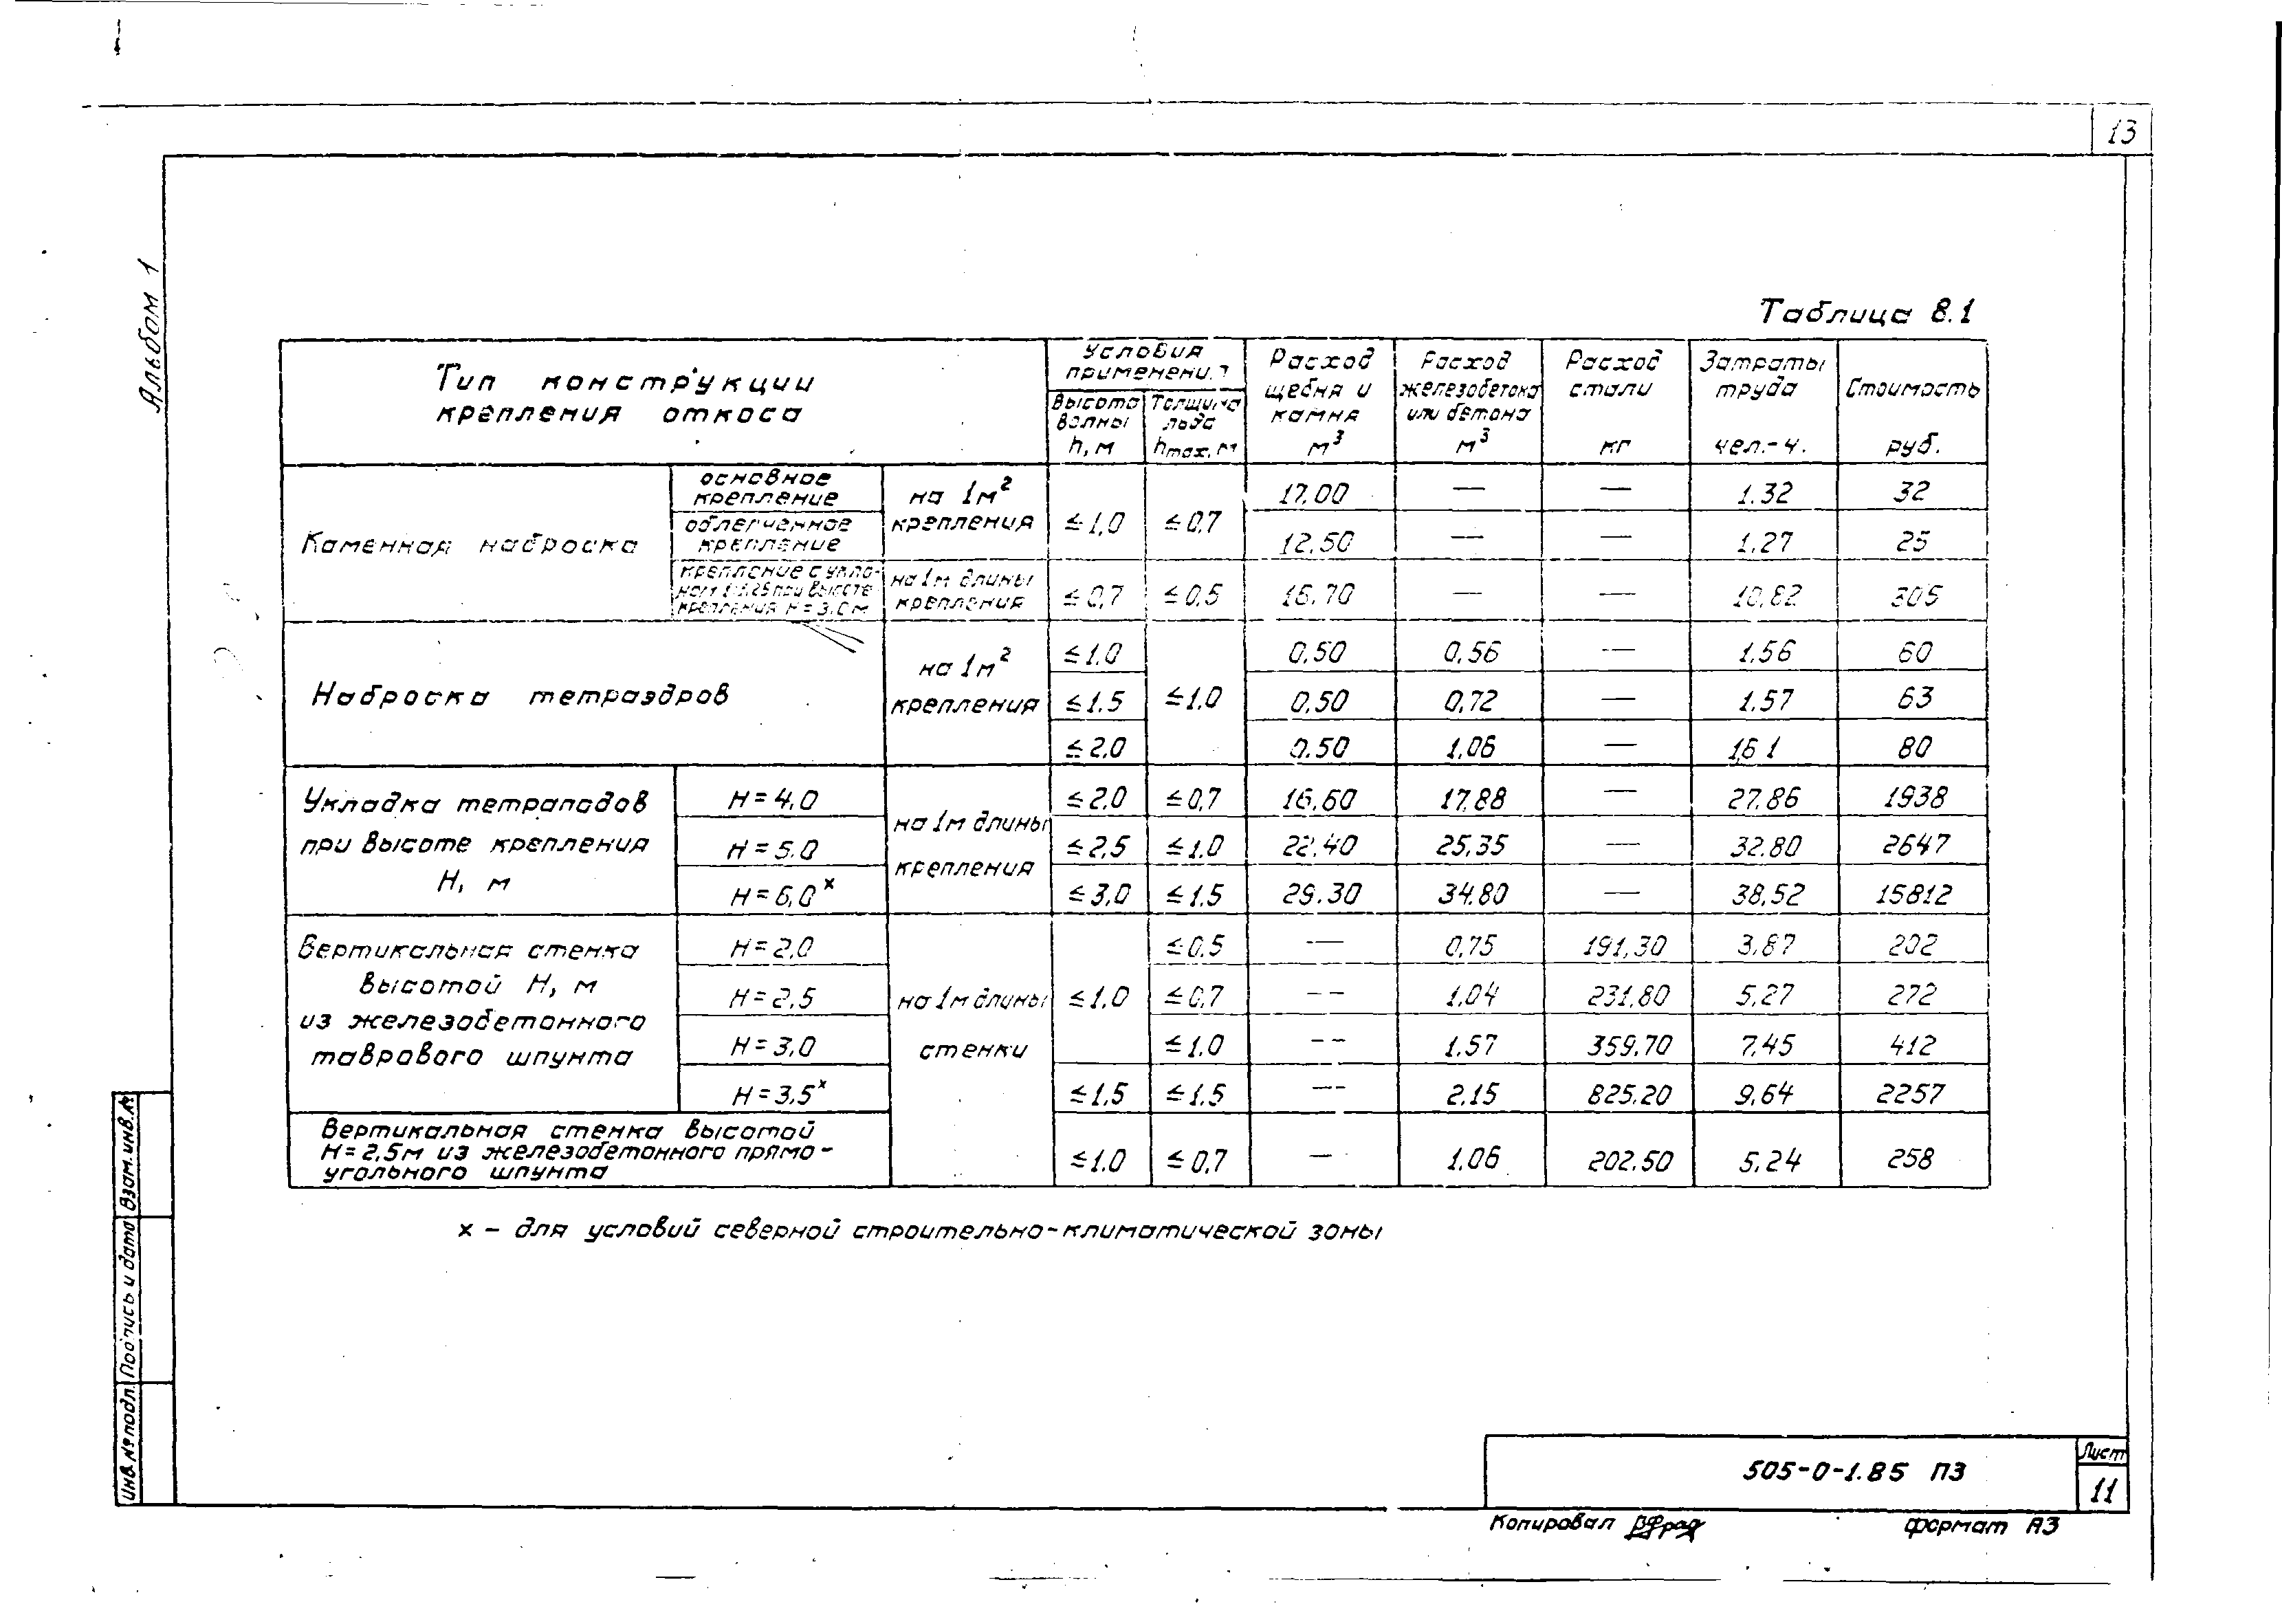 13
Альбом 1
Таблица 8.1
Тип конструкции
крепления откоса
Условия
применения
Высота
волны
h, м
Толщина
льда
hmax, м
Расход
щебня и
камня
м³
Расход
железобетона
или бетона
м³
Расход
стали
кг
Затраты
труда
чел.-ч.
Стоимость
руб.
Каменная наброска
основное
крепление
на 1м²
крепления
≤1,0
≤0,7
17,00 — — 1.32 32
облегченное
крепление
12,50 — — 1,27 25
крепление с укло-
ном 1:1,25 при высоте
крепления H = 3,0 м
на 1м длины
крепления
≤0,7 ≤0,5 16,70 — — 10,82 305
Наброска тетраэдров
на 1м²
крепления
≤1,0
≤1,0
0,50 0,56 — 1,56 60
≤1,5 0,50 0,72 — 1,57 63
≤2,0 0,50 1,06 — 1,61 80
Укладка тетраподов
при высоте крепления
H, м
на 1м длины
крепления
H = 4,0 ≤2,0 ≤0,7 16,60 17,88 — 27,86 1938
H = 5,0 ≤2,5 ≤1,0 22,40 25,35 — 32,80 2647
H = 6,0ˣ ≤3,0 ≤1,5 29,30 34,80 — 38,52 15812
Вертикальная стенка
высотой H, м
из железобетонного
таврового шпунта
на 1м длины
стенки
≤1,0
H = 2,0 ≤0,5 — 0,75 191,30 3,87 202
H = 2,5 ≤0,7 — 1,04 231,80 5,27 272
H = 3,0 ≤1,0 — 1,57 359,70 7,45 412
H = 3,5ˣ ≤1,5 ≤1,5 — 2,15 825,20 9,64 2257
Вертикальная стенка высотой
H = 2,5м из железобетонного прямо-
угольного шпунта
≤1,0 ≤0,7 — 1,06 202,50 5,24 258
х – для условий северной строительно-климатической зоны
Взам. инв. №
Подпись и дата
Инв. № подл.
505-0-1.85 ПЗ
Лист
11
Копировал
формат А3